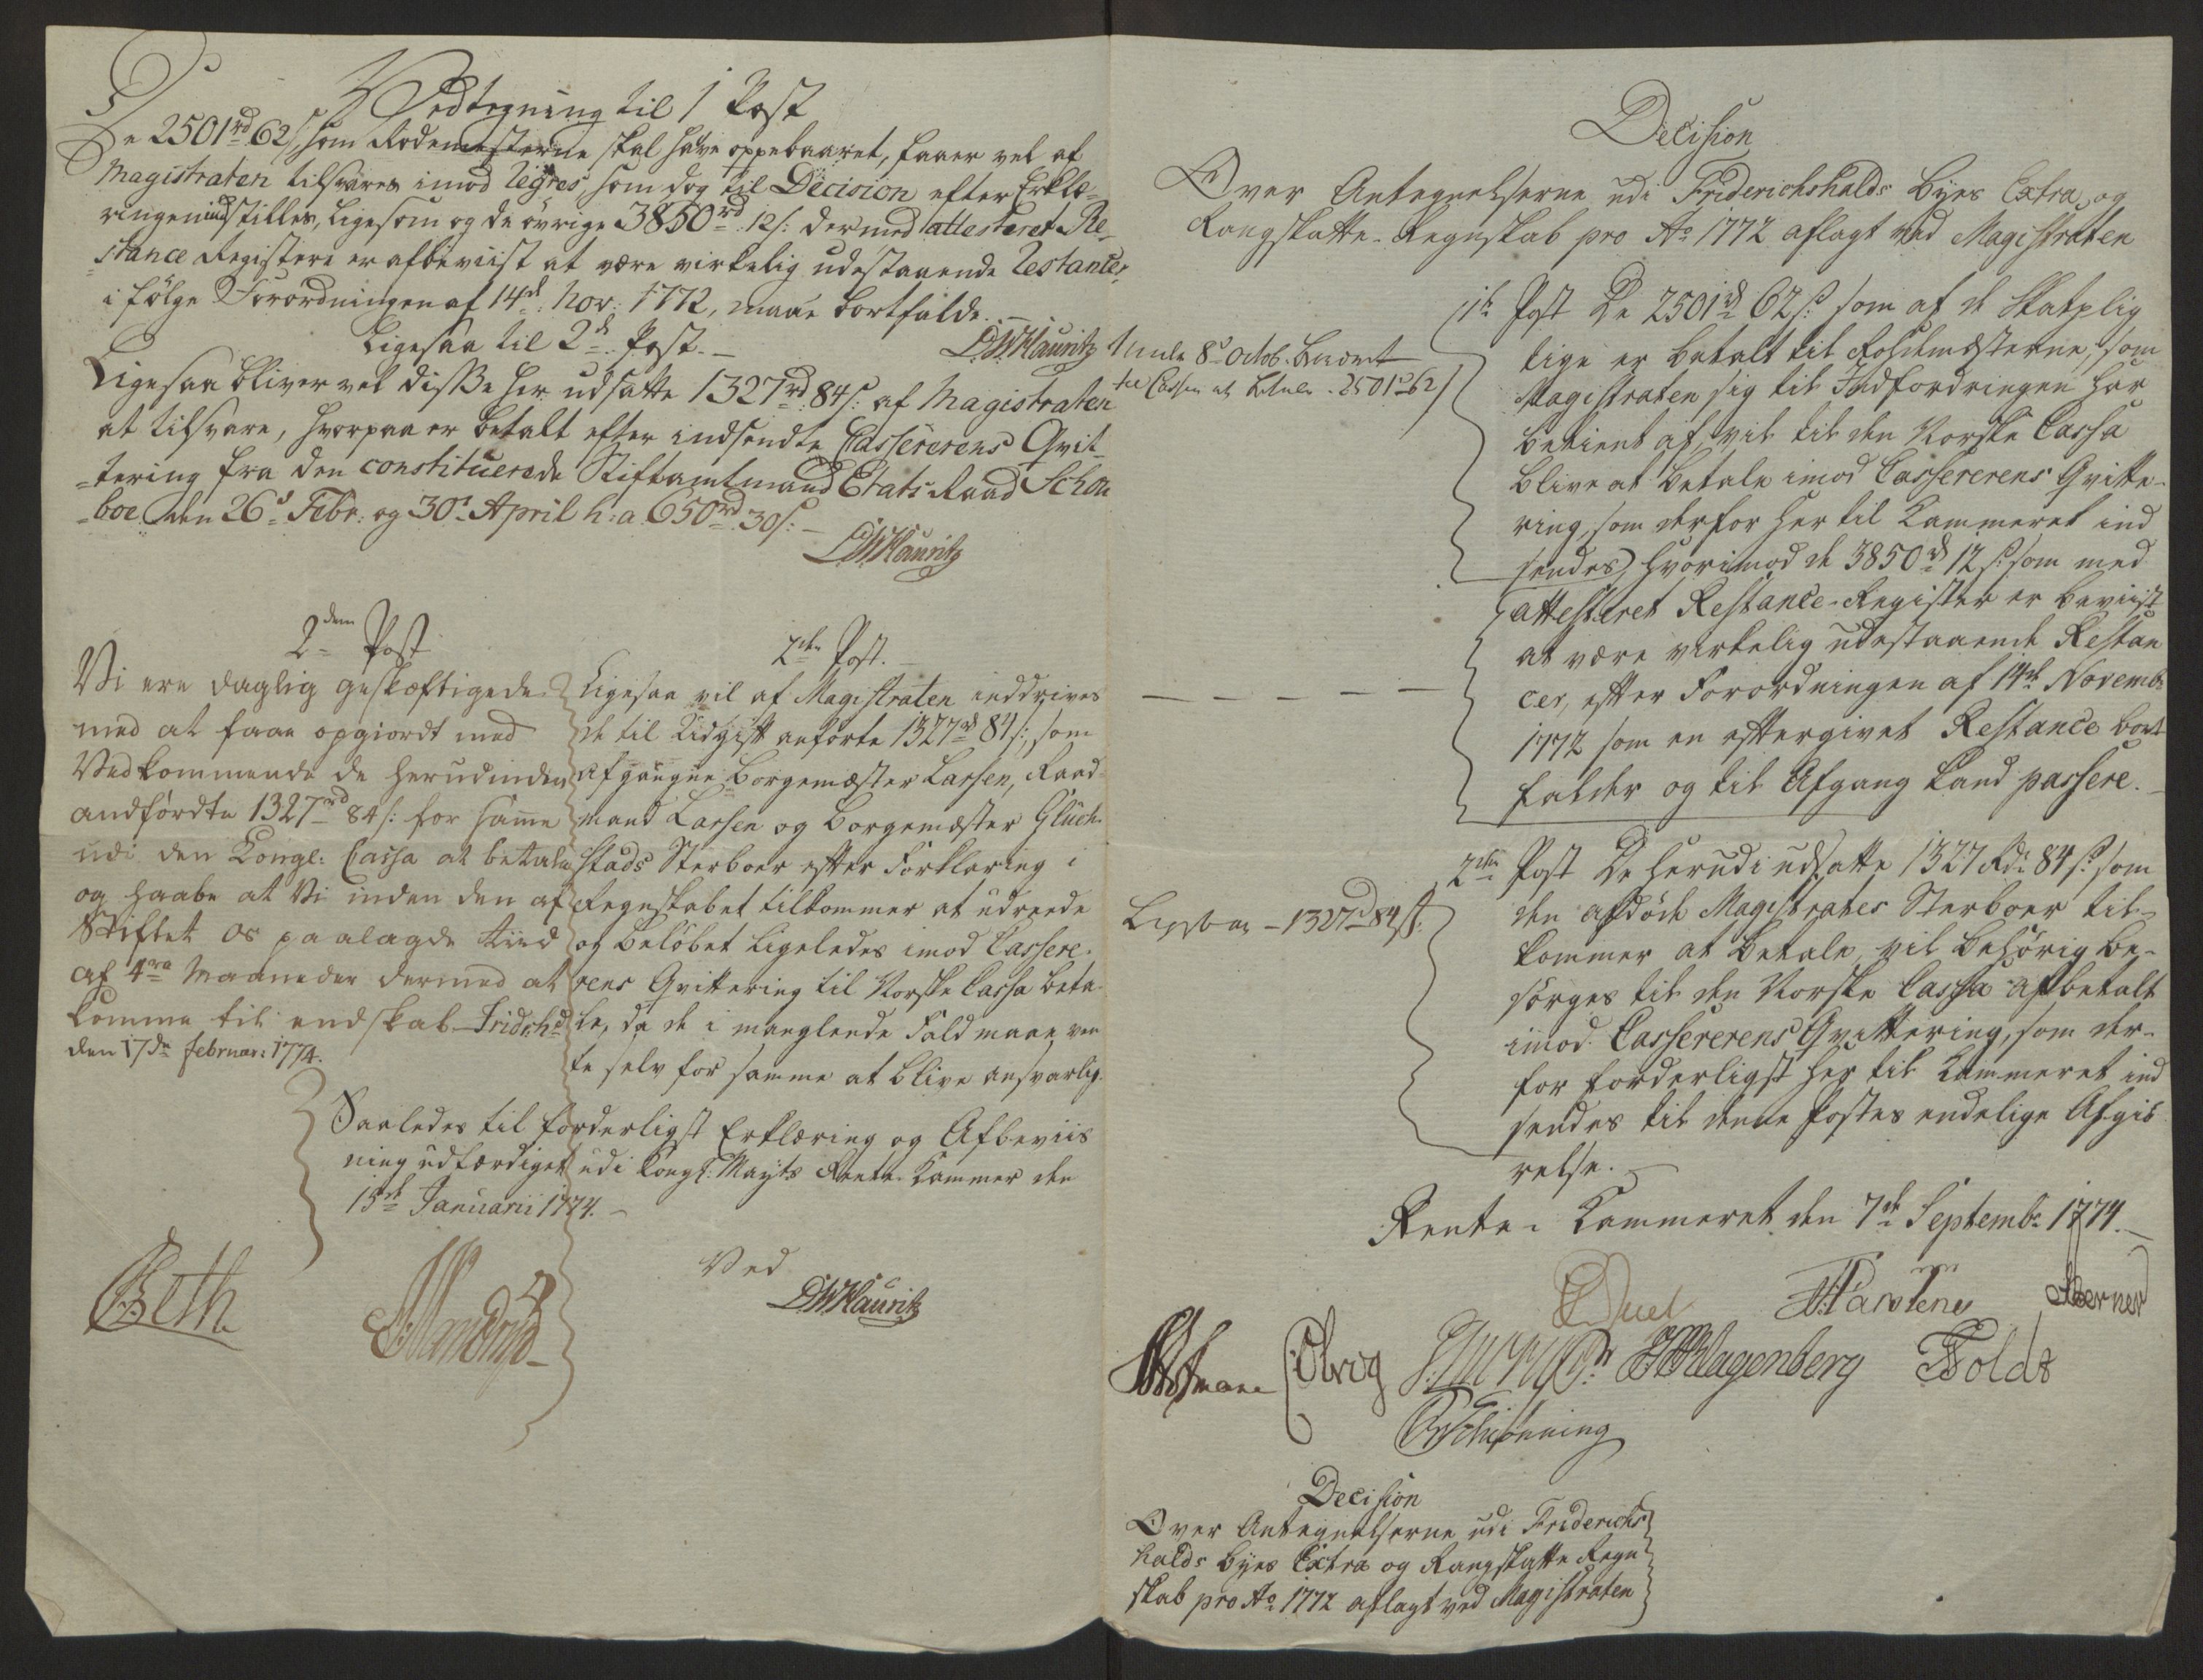 Vedtegning til 1 Post
De 2501rd 62 s, som Rodemesterne skal have oppebaaret, faaer vel af
Magistraten tilsvares imod Regres, som dog til Decision efter Erklæ-
ringen indstilles, ligesom og de øvrige 3850rd 12 s: der med attesteret Re-
stance Register er afbeviist at være virkelig udestaaende Restancer,
i følge Forordningen af 14de Nov: 1772, maae bortfalde.
DWHauritz
Ligesaa til 2de Post.
Ligesaa bliver vel disse her udsatte 1327rd 84 s: af Magistraten
at tilsvare, hvorpaa er betalt efter indsendte Cassererens Qvit-
tering fra den constituerede Stiftamtmand Etats Raad Schou
boe den 26de Febr: og 30te April h: a: 650rd 30 s:
DWHauritz
2den Post
Vi ere daglig geskæftigede
med at faae opgiordt med
Vedkommende de herudinden
andførdte 1327rd 84 s: for samme
udi den Kongl: Cassa at betale
og haabe at Vi inden den af
Stiftet os paalagde tiid
af 4re Maaneder dermed at
komme til endskab Fridrhd
den 17de Februar: 1774.
2den Post.
Ligesaa vil af Magistraten inddrives
de til Udgift anførte 1327rd 84 s:, som
afgangne Borgemæster Larsen, Raad-
mand Larsen og Borgemæster Glück-
stads Sterboer efter Forklaring i
Regnskabet tilkommer at udreede
og Beløbet ligeledes imod Cassere-
rens Qvittering til Norske Cassa beta-
le, da de i manglende Fald maae ven-
te selv for samme at blive ansvarlig.
Saaledes til forderligst Erklæring og Afbeviis
ning udfærdiget udi Kongl: Mayts Rente-Kammer den
15de Januarii 1774.
Beth
Ved
DWHauritz
Decision
Over Antegnelserne udi Friderichshalds Byes Extra, og
Rangskatte-Regnskab pro Ao 1772 aflagt ved Magistraten
1te Post De 2501rd 62 s: som af de Skatplig
tige er betalt til Rodemæsterne, som
Magistraten sig til Indfordringen har
betient af, vil til den Norske Cassa
blive at betale imod Cassererens Qvitte-
ring, som derfor her til Kammeret ind
sendes, hvorimod de 3850rd 12 s: som med
attesteret Restance-Register er beviist
at være virkelig udestaaende Restan
cer, efter Forordningen af 14de Novembr
1772 som en eftergivet Restance bort
falder og til Afgang kand passere.
8de Octob.
2501 62
2den Post De herudi udsatte 1327 Rdr 84 s: som
den afdøde Magistrates Sterboer til-
kommer at betale, vil behørig be-
sørges til den Norske Cassa afbetalt
imod Cassererens Qvittering, som der-
for forderligst her til Kammeret ind
sendes til denne Postes endelige Afgiø
relse.
Ligesaa - 1327rd 84 s.
Rente-Kammeret den 7de Septembr 1774.
Duel Karstens Berner
Hofmann Olrog JHKlagenberg Holdt
Schiønning
Decision
Over Antegnelserne udi Friderichs
halds Byes Extra og Rangskatte Regn
skab pro Ao 1772 aflagt ved Magistraten